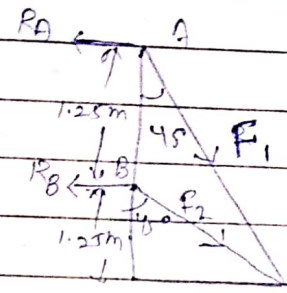 RA A
1.25m 45 F1
RB B
F2
1.25m